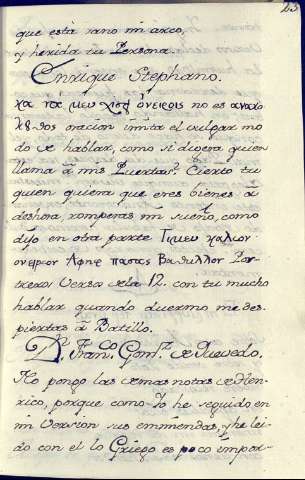 23
que està sano mi arco,
y herida tu Persona.
Enrique Stephano.
χα τας μευ χισης ονειρȣς no es αναχο
λȣθος oracion imita el vulgar mo
do de hablar, como si dixera quien
llama à mis Puertas? Cierto tu
quien quiera que eres bienes à
deshora, romperas mi sueño, como
dijo en otra parte Τι μευ χαλων
ονειρων Αφηρπασας Βαθυλλον Por
trero Verso de la 12. con tu mucho
hablar quando duermo me des
piertas à Batillo.
Dn. Franco. Gomz. de Quevedo.
No pongo las demas notas de Hen-
rico, porque como Yo he seguido en
mi version sus enmiendas, y he lei-
do con el lo Griego es poco impor-